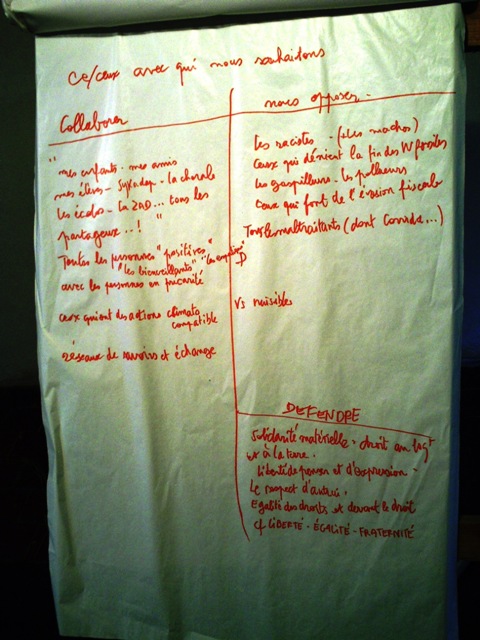 ce/ceux avec qui nous souhaitons
Collaborer
" mes enfants - mes amis
mes élèves - - la chorale
les écolos - la ZAD ... tous les
partageux ..! "
Toutes les personnes "positives"
"les bienveillants"
avec les personnes en priorité
ceux qui ont des actions climato
compatible
réseaux de savoirs et échange
nous opposer -
Les racistes - (+ les machos)
Ceux qui dénient la fin des fossiles
Les gaspilleurs - les pollueurs
Ceux qui font de l'évasion fiscale
Tous les maltraitants (dont Corrida...)
Vs nuisibles
DEFENDRE
Solidarité matérielle - droit au logt
et à la terre.
Liberté de penser et d'expression -
Le respect d'autrui.
Egalité des droits et devant le droit
cf LIBERTÉ - ÉGALITÉ - FRATERNITÉ